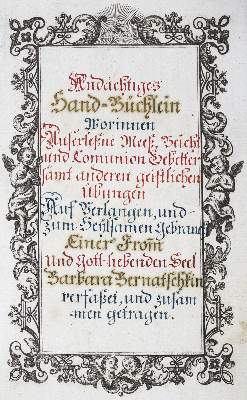 Andächtiges
Hand-Büchlein
Worinnen
Auserleßne Meß, Beicht
und Comunion Gebetter
samt anderen geistlichen
Übungen
Auf Verlangen, und
zum Heÿlsamen Gebrauch
Einer From
Und Gott-liebenden Seel
Barbara Bernatschkin
verfaßet, und zusam
-men getragen.